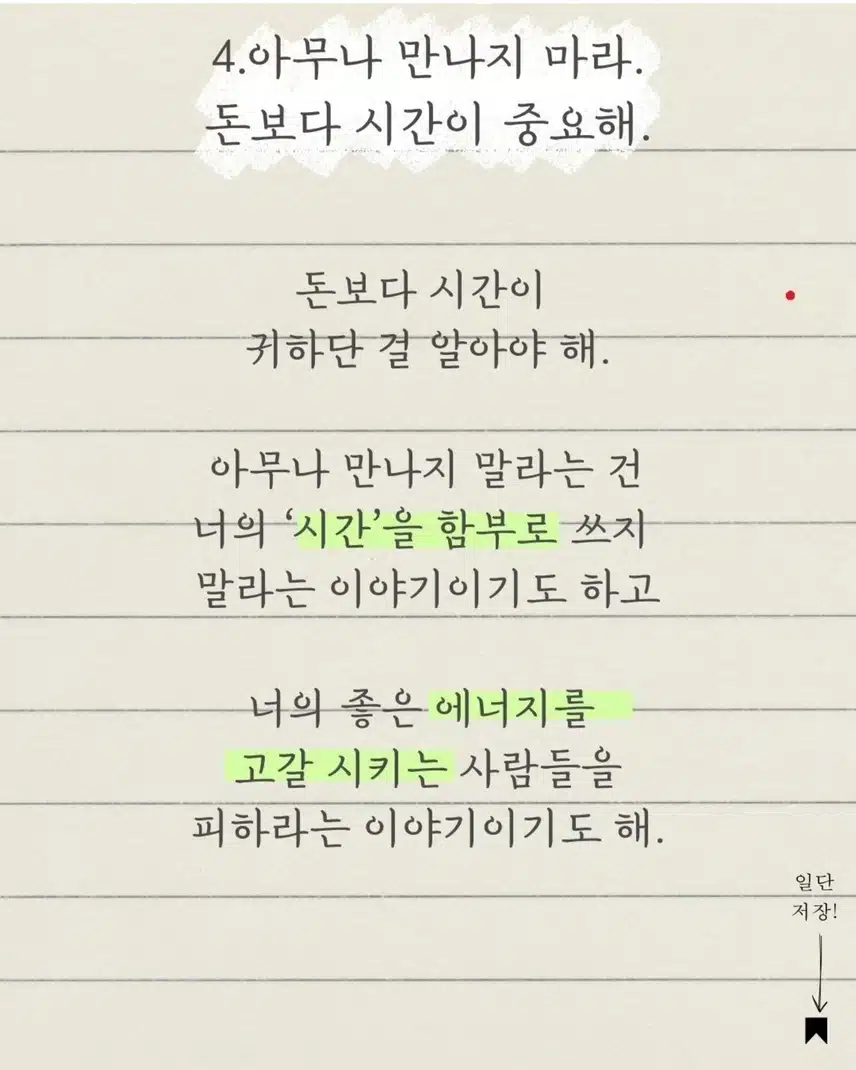 4.아무나 만나지 마라.
돈보다 시간이 중요해.
돈보다 시간이
귀하단 걸 알아야 해.
아무나 만나지 말라는 건
너의 ‘시간’을 함부로 쓰지
말라는 이야기이기도 하고
너의 좋은 에너지를
고갈 시키는 사람들을
피하라는 이야기이기도 해.
일단
저장!